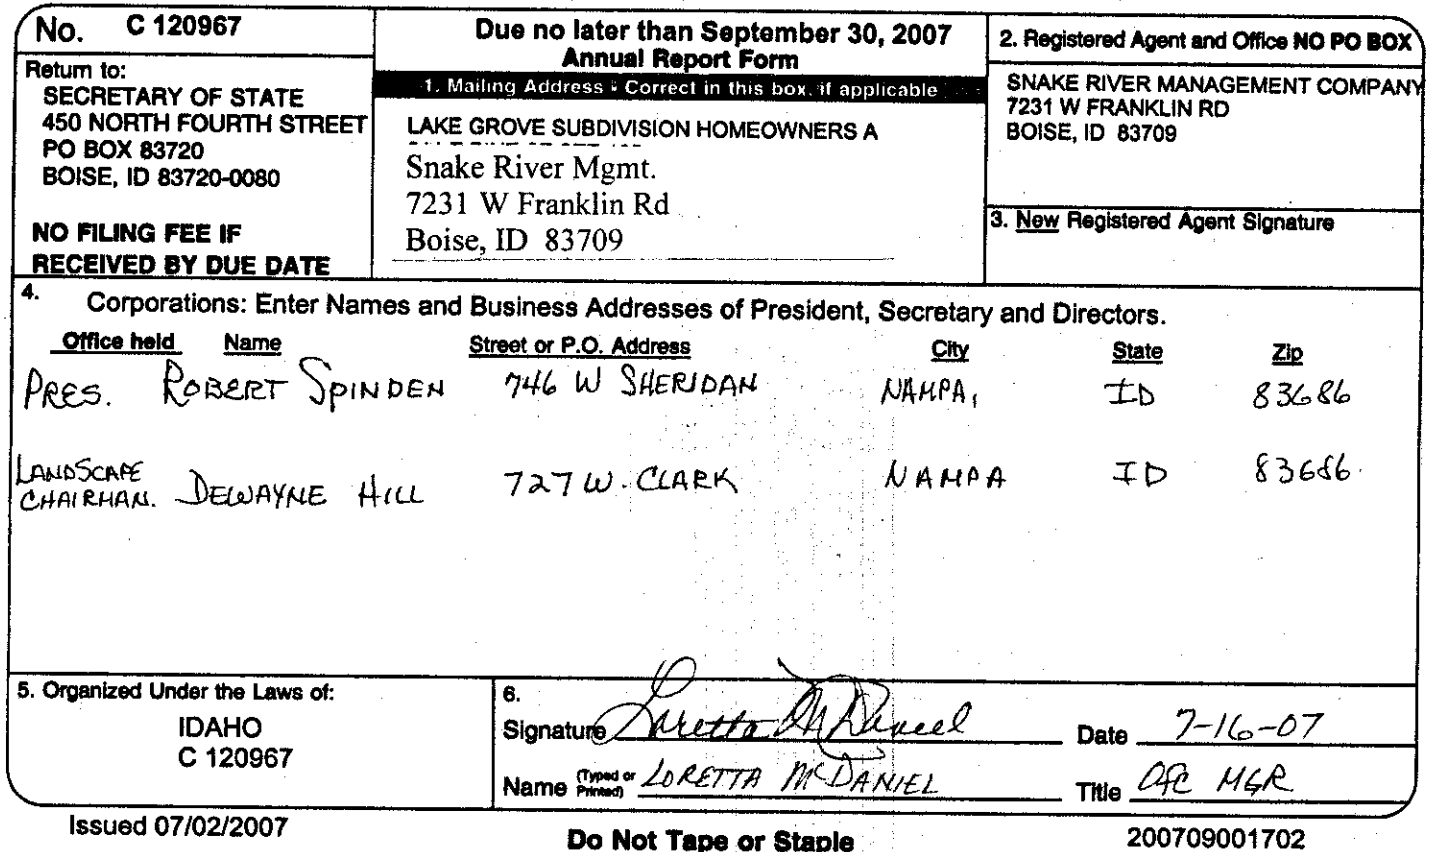 No. C 120967
Return to:
SECRETARY OF STATE
450 NORTH FOURTH STREET
PO BOX 83720
BOISE, ID 83720-0080
NO FILING FEE IF
RECEIVED BY DUE DATE
Due no later than September 30, 2007
Annual Report Form
1. Mailing Address - Correct in this box, if applicable
LAKE GROVE SUBDIVISION HOMEOWNERS A
Snake River Mgmt.
7231 W Franklin Rd
Boise, ID 83709
2. Registered Agent and Office NO PO BOX
SNAKE RIVER MANAGEMENT COMPANY
7231 W FRANKLIN RD
BOISE, ID 83709
3. New Registered Agent Signature
4. Corporations: Enter Names and Business Addresses of President, Secretary and Directors.
Office held Name Street or P.O. Address City State Zip
PRES. ROBERT SPINDEN 746 W SHERIDAN NAMPA, ID 83686
LANDSCAPE
CHAIRMAN. DEWAYNE HILL 727 W. CLARK NAMPA ID 83686.
5. Organized Under the Laws of:
IDAHO
C 120967
6.
Signature Loretta McDaniel Date 7-16-07
Name (Typed or Printed) LORETTA MCDANIEL Title Ofc MGR
Issued 07/02/2007 Do Not Tape or Staple 200709001702